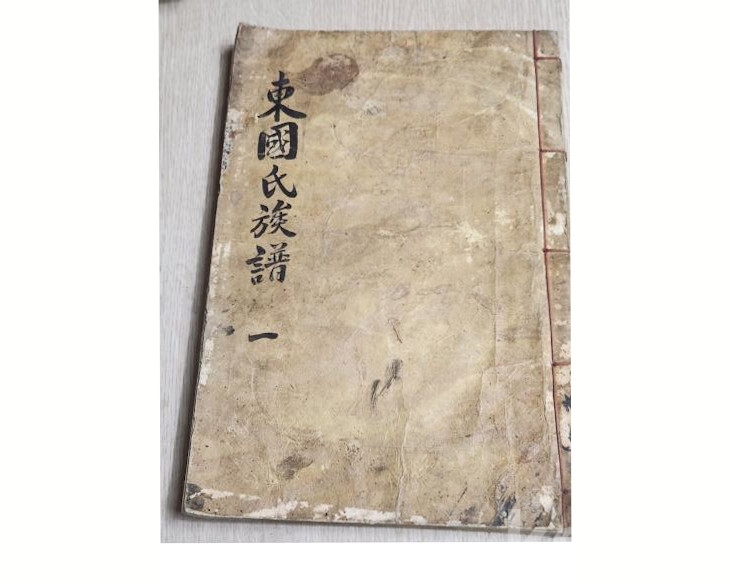 東國氏族譜 一